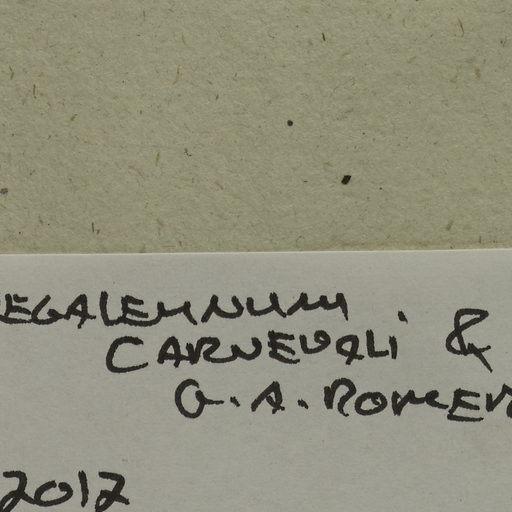 EGALEMNUM
CARNEVALI &
G. A. ROMER
2012